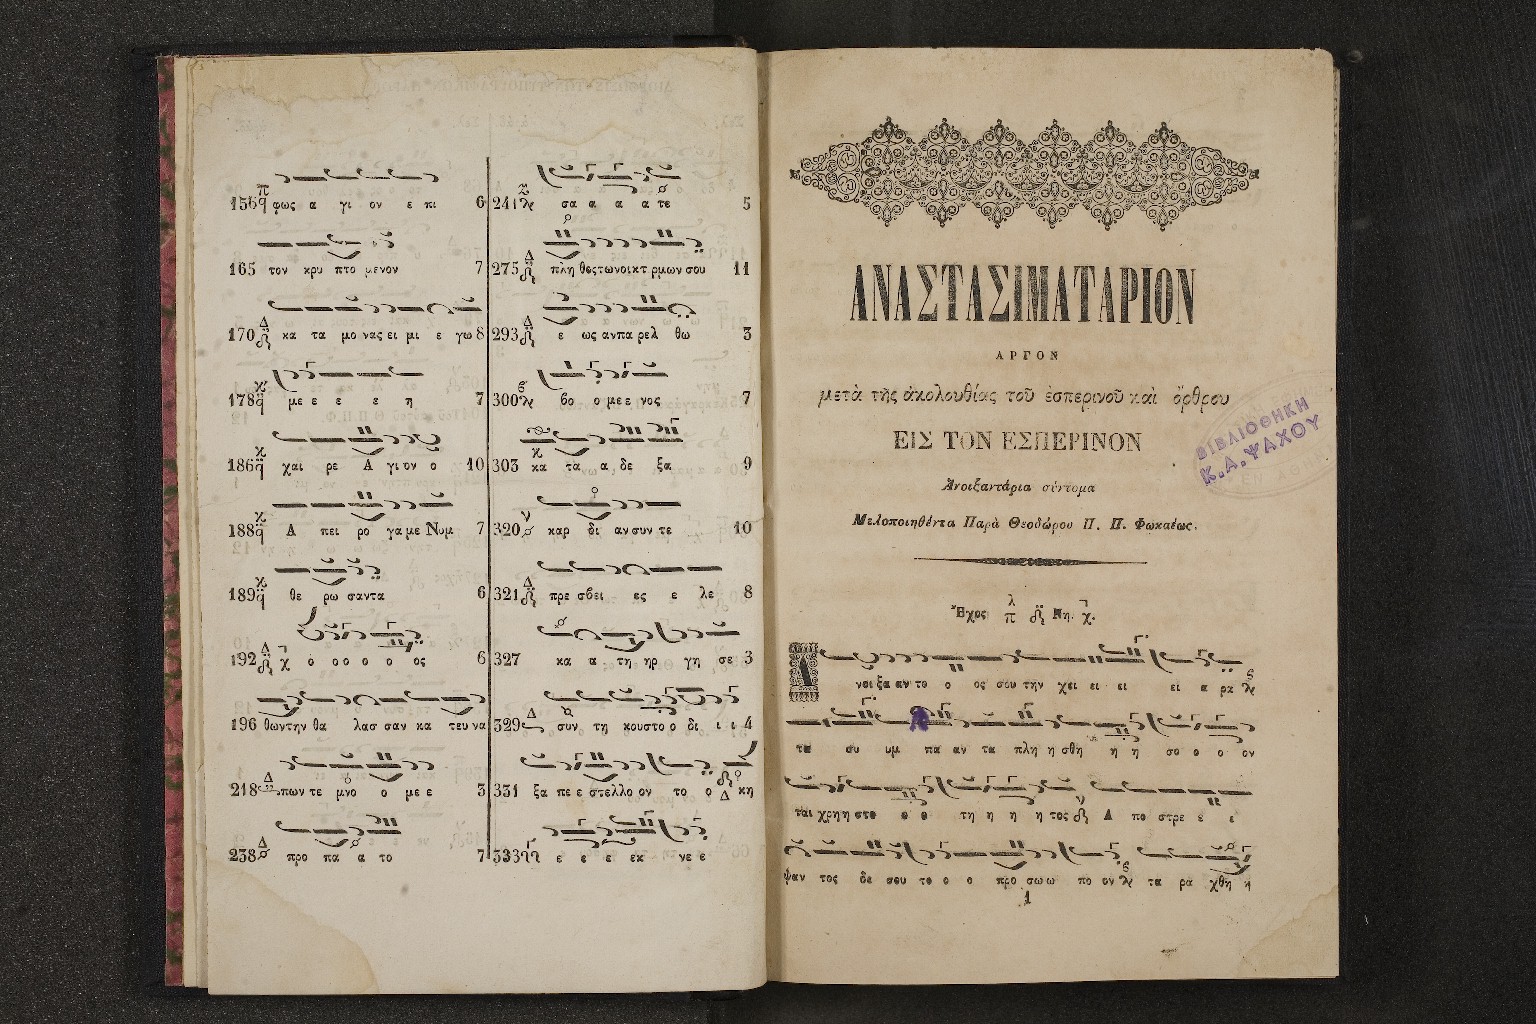 156 φως α γι ον ε πι 6
165 τον κρυ πτο μενον 7
170 κα τα μο νας ει μι ε γω 8
178 με ε ε ε η 7
186 χαι ρε Α γι ον ο 10
188 Α πει ρο γα με Νυμ 7
189 θε ρω σαντα 6
192 ο ο ο ο ο ος 6
196 θωντην θα λασ σαν κα τευ να
218 πων τε μνο ο με ε 3
238 προ πα α το 7
241 σα α α α τε 5
275 πλη θοςτωνοικτ ρμων σου 11
293 ε ως ανπα ρελ θω 3
300 βο ο με ε νος 7
303 κα τα α δε ξα 9
320 καρ δι αν συν τε 10
321 πρε σβει ες ε λε 8
327 κα α τη ηρ γη σε 3
329 συν τη κουστο ο δι ι ι 4
331 ξα πε ε στελλο ον το ο κη
333 ε ε ε εκ νε ε
ΑΝΑΣΤΑΣΙΜΑΤΑΡΙΟΝ
ΑΡΓΟΝ
μετὰ τῆς ἀκολουθίας τοῦ ἑσπερινοῦ καὶ ὄρθρου
ΕΙΣ ΤΟΝ ΕΣΠΕΡΙΝΟΝ
Ἀνοιξαντάρια σύντομα
Μελοποιηθέντα Παρὰ Θεοδώρου Π. Π. Φωκαέως.
ΒΙΒΛΙΟΘΗΚΗ
Κ. Α. ΨΑΧΟΥ
Ἦχος λ π Νη
Α νοι ξα αν το ο ος σου την χει ει ει ει α ρα
τα συ υμ πα αν τα πλη η σθη η η σο ο ο ον
ται χρη η στο ο ο τη η η η τος Α πο στρε ε ε
ψαν τος δε σου το ο ο προ σω ω πο ον τα ρα χθη η
1